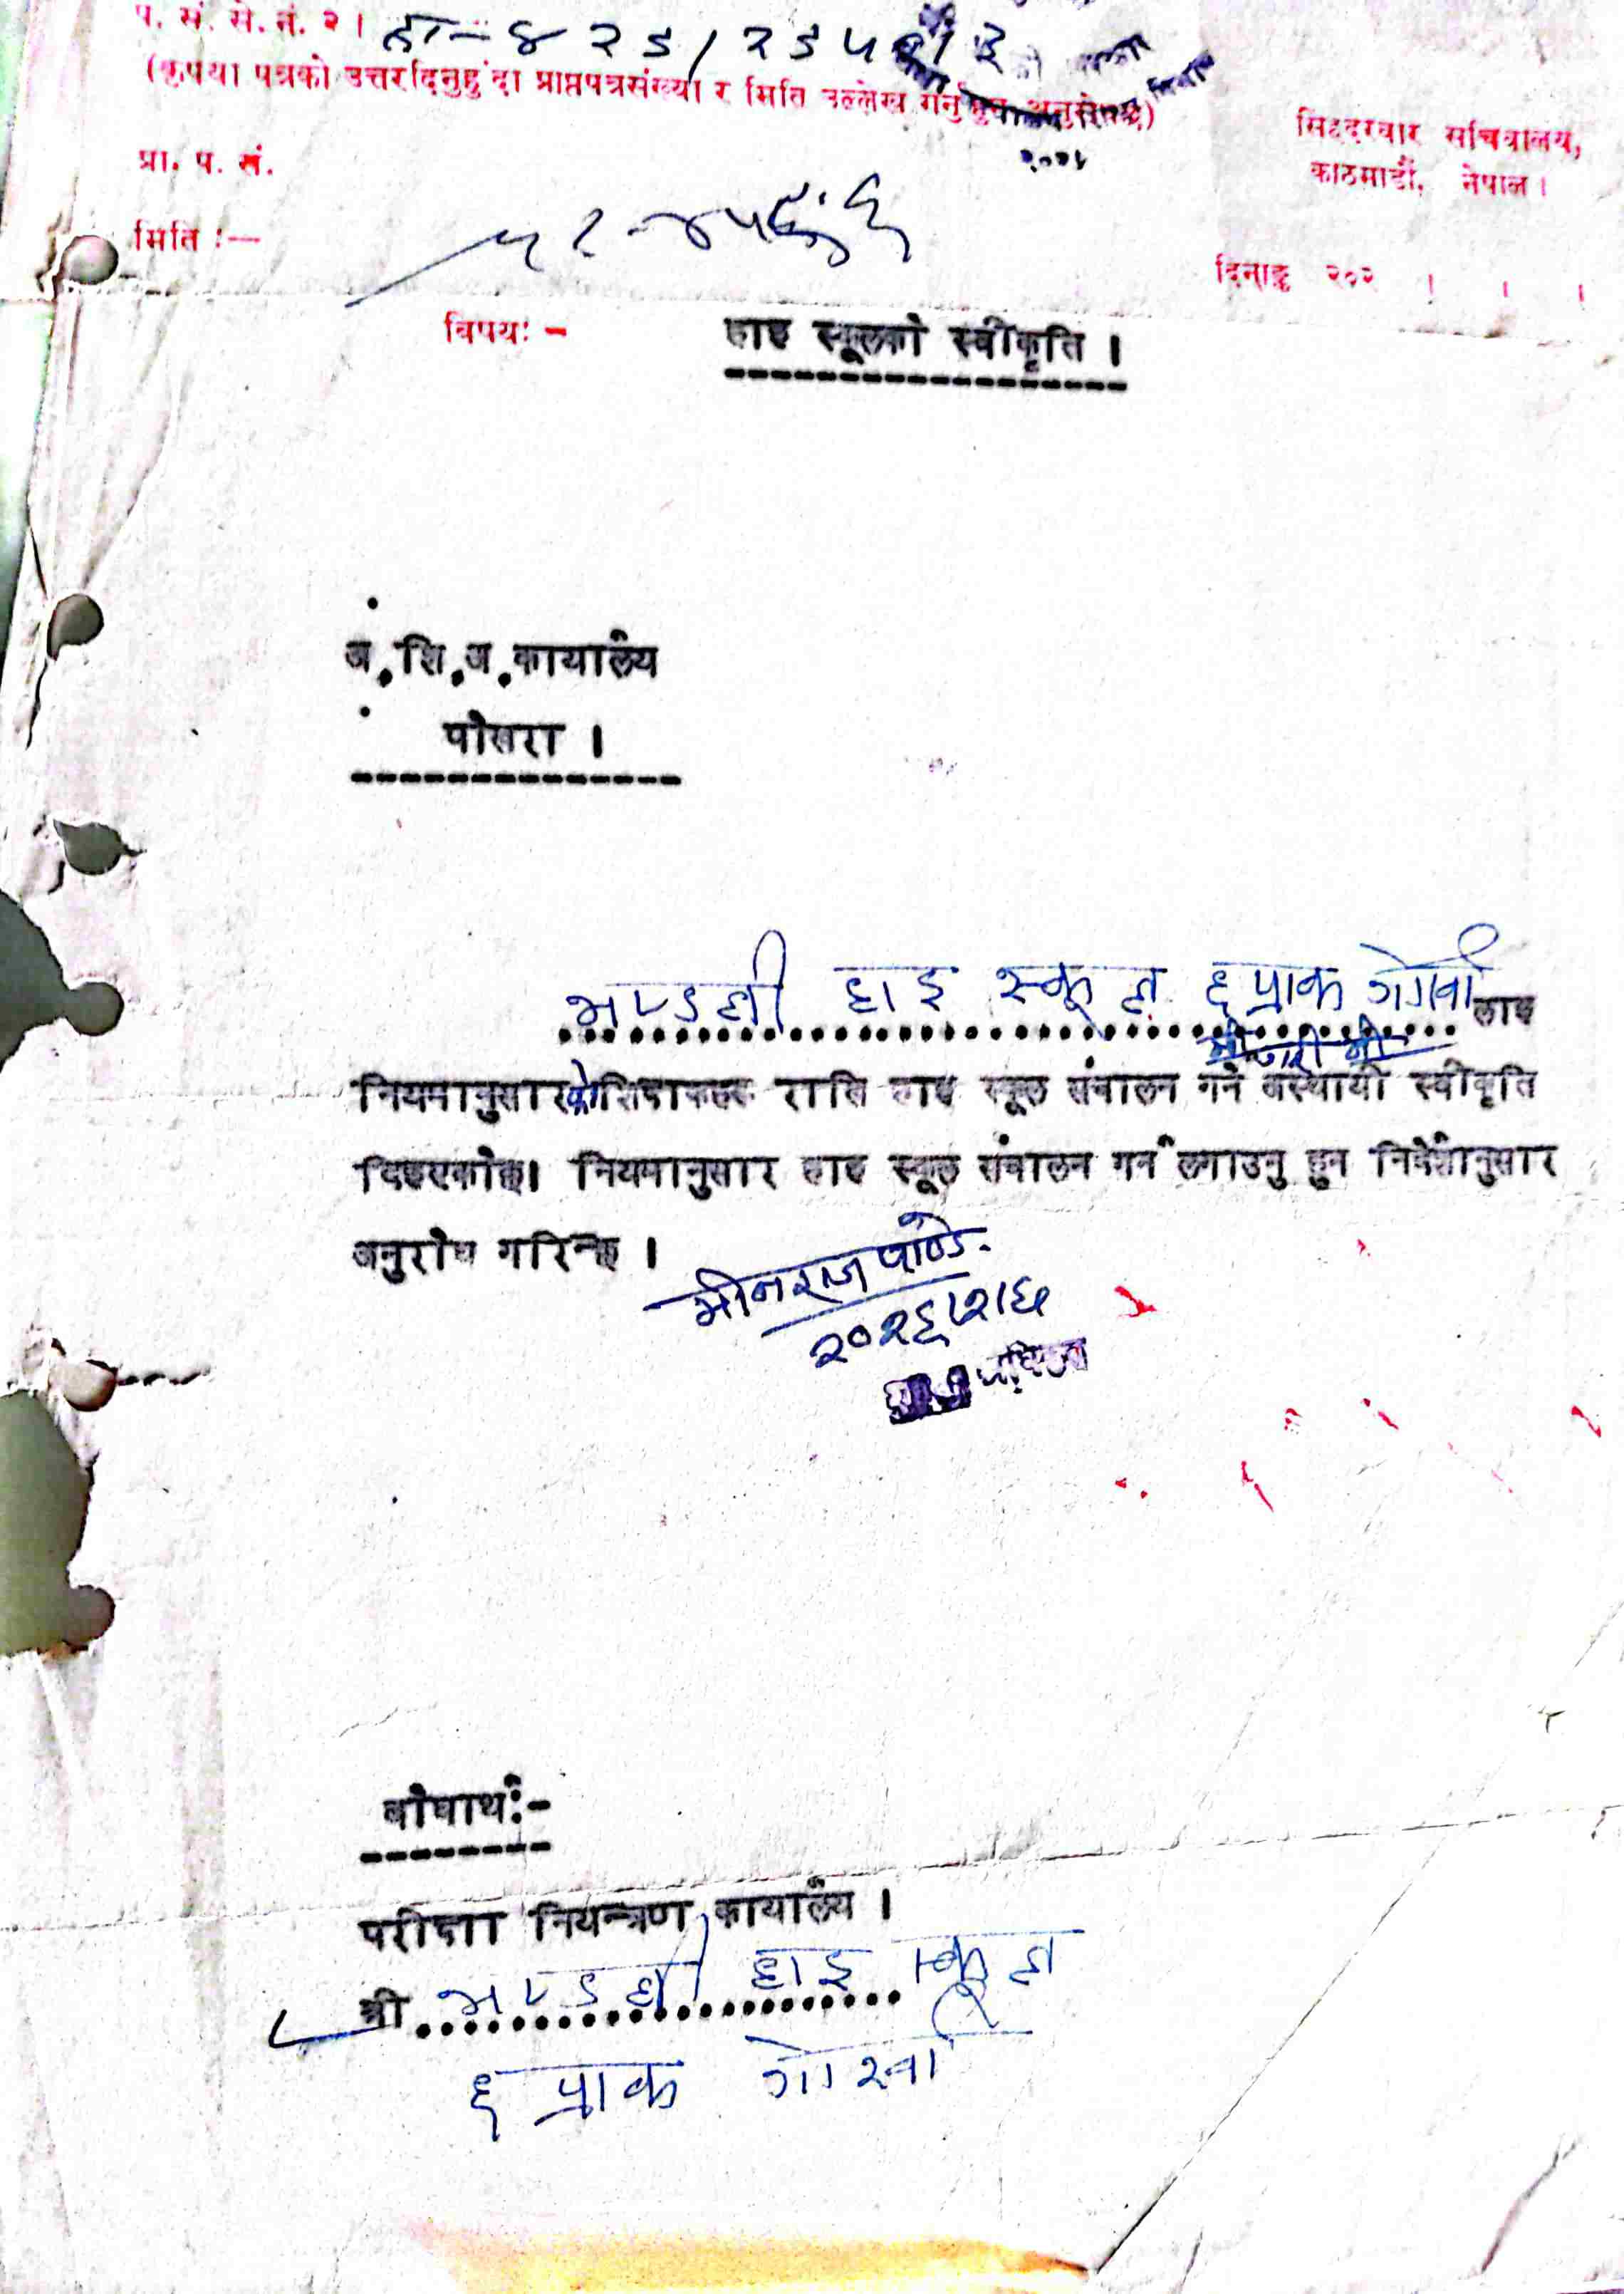 प. सं. से. नं. २ ।
(कृपया पत्रको उत्तरदिनुहुंदा प्राप्तपत्रसंख्या र मिति उल्लेख गर्नु
सिंहदरवार सचिवालय,
काठमाडौं, नेपाल ।
प्रा. प. सं.
मिति :—
दिनाङ्क २०२ । । ।
विषयः - हाइ स्कूलको स्वीकृति ।
अ.शि.अ.कार्यालय
पोखरा ।
हाइ स्कूल छ प्राक लाइ
नियमानुसार को राति हाइ स्कूल संचालन गर्ने अस्थायी स्वीकृति
दिइएकोछ। नियमानुसार हाइ स्कूल संचालन गर्न लगाउनु हुन निर्देशानुसार
अनुरोध गरिन्छ ।
मीनराज पाण्डे
बोधार्थ:-
परीक्षा नियन्त्रण कार्यालय ।
श्री हाइ स्कूल
छ प्राक गोरखा